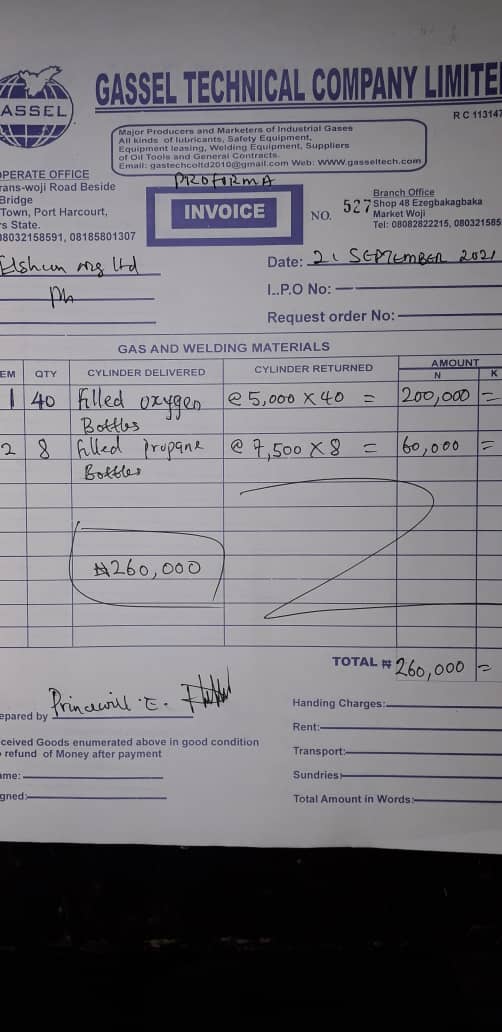 GASSEL TECHNICAL COMPANY LIMITE
ASSEL
R C 113147
Major Producers and Marketers of Industrial Gases
All kinds of lubricants, Safety Equipment,
Equipment leasing, Welding Equipment, Suppliers
of Oil Tools and General Contracts.
Email: gastechcoltd2010@gmail.com Web: WWW.gasseltech.com
PERATE OFFICE
rans-woji Road Beside
Bridge
Town, Port Harcourt,
rs State.
08032158591, 08185801307
PROFORMA
INVOICE
NO. 527
Branch Office
Shop 48 Ezegbakagbaka
Market Woji
Tel: 08082822215, 080321585
mg ltd
Date: 21 SEPTEMBER 2021
Ph
I..P.O No:
Request order No:
GAS AND WELDING MATERIALS
EM QTY CYLINDER DELIVERED CYLINDER RETURNED AMOUNT
N K
1 40 filled oxygen @ 5,000 X 40 = 200,000 =
Bottles
2 8 filled Propane @ 7,500 X 8 = 60,000 =
Bottles
₦260,000
TOTAL ₦ 260,000 =
epared by Princewill .E.
Handing Charges:
Rent:
ceived Goods enumerated above in good condition
refund of Money after payment
Transport:
ame:
Sundries:
gned:
Total Amount in Words: